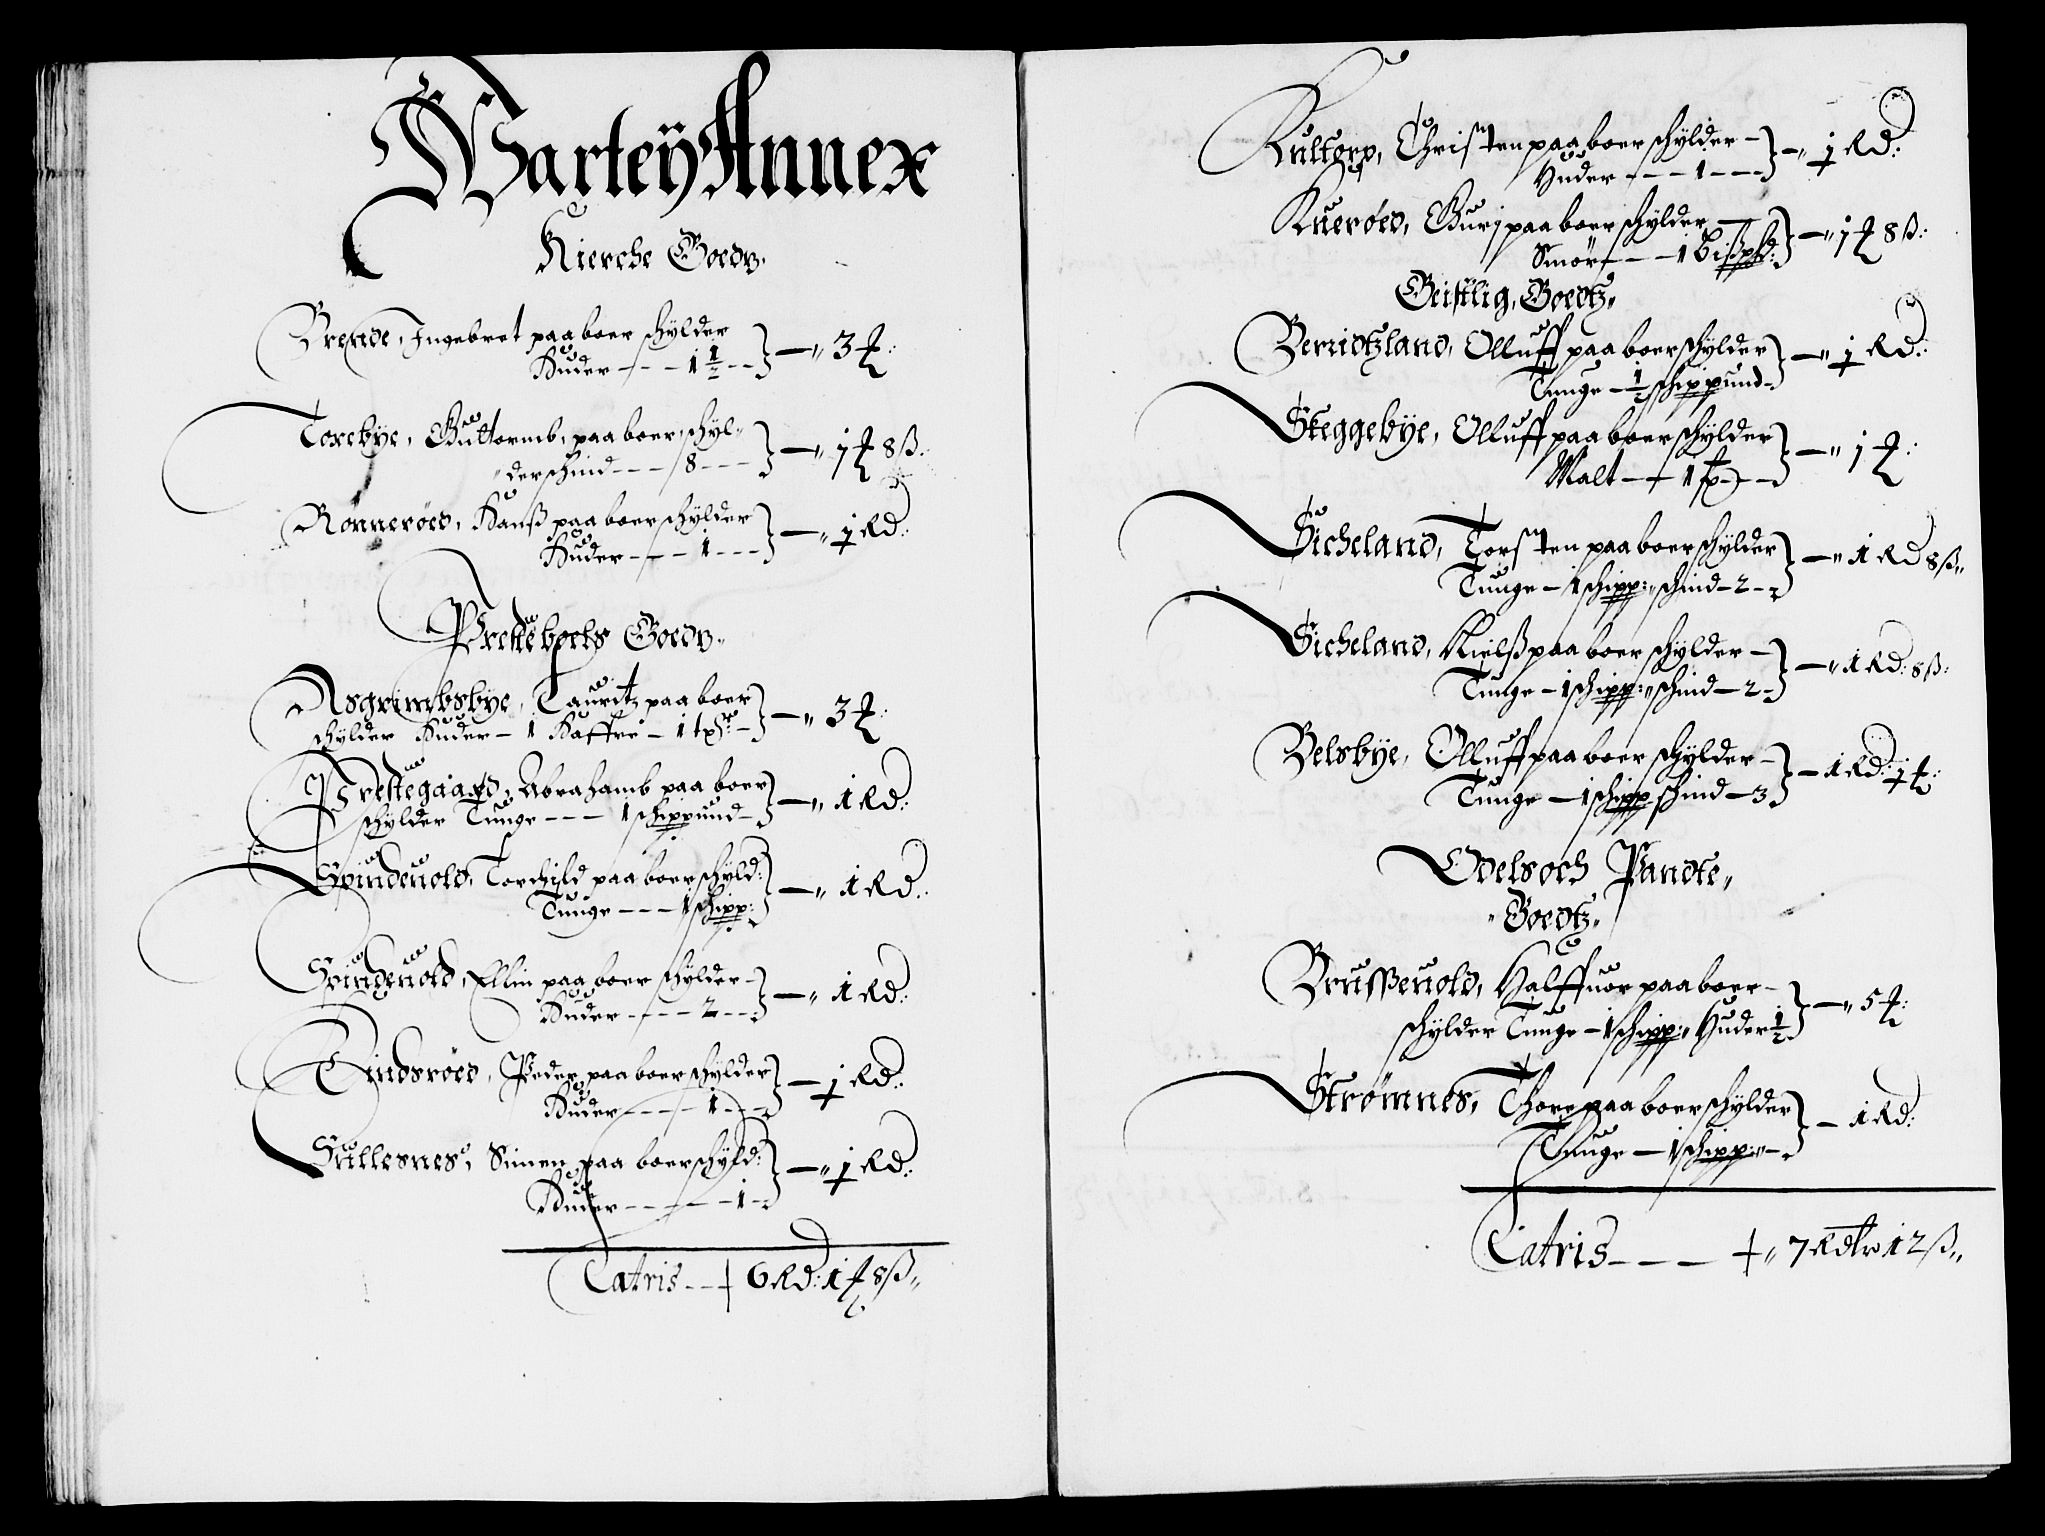 Warteÿ Annex
Kierche Goedz.
Brende, Ingebret paa boer schÿlder
Huder - - - 1 1/2 - - } — „ 3 ƒ:
Torebÿe, Guttormb, paa boer, schÿl„
„der schind - - - 8 - - - } — „ 1 ƒ 8 ß:
Rönneröed, Hanß paa boer schÿlder
Huder - - - 1 - - - } — „ 1 Rd:
Presteboels Goedz„
Asgrimbsbÿe, Lauritz paa boer
schÿlder Huder — 1 Haffre — 1 tpr: — } — „ 3 ƒ:
Prestegaard, Abrahamb paa boer
schÿlder Tunge - - - 1 schippund — } — „ 1 Rd:
Spindeuold, Torchild paa boer schÿld:
Tunge - - - 1 schipp: } — „ 1 Rd:
Spindeuold, Ellin paa boer schÿlder —
Huder - - - - 2 - - } — „ 1 Rd:
Lindsröed, Peder paa boer schÿlder
Huder - - - - 1 - - } — 1 Rd:
Sullesnes, Simen paa boer schÿld:
Huder - - - - 1 - } — „ 1 Rd:
Latris - - 6 Rd: 1 ƒ 8 ß„
Kultorp, Christen paa boer schÿlder —
Huder - - - 1 - - - } — „ 1 Rd:
Kueröed, Gurj paa boer schÿlder —
Smör - - - 1 bißpd: } — „ 1 ƒ 8 ß:
Geistlig, Goedtz„
Berridtzland, Olluff paa boer schÿlder
Tunge — 1/2 schippund — } — „ 1 Rd:
Skeggebÿe, Olluff paa boer schÿlder
Malt — 1 tp — } — „ 1 ƒ:
Sicheland, Torsten paa boer schÿlder
Tunge — 1 schipp:„ schind — 2 - } — „ 1 Rd 8 ß„
Sicheland, Nielß paa boer schÿlder —
Tunge — 1 schipp:„ schind — 2 - } — „ 1 Rd: 8 ß:
Belsbÿe, Olluff paa boer schÿlder —
Tunge — 1 schipp schind — 3 } — 1 Rd: 1 ƒ:
Odels och Pandte„
„Goedtz„
Brusseuold, Halffuor paa boer —
schÿlder Tunge — 1 schipp:„ Huder 1/2 } — „ 5 ƒ:
Strömnes, Thore paa boer schÿlder
Tunge — 1 schipp:„ — } — 1 Rd:
Latris - - - „ 7 Rdlr 12 ß„